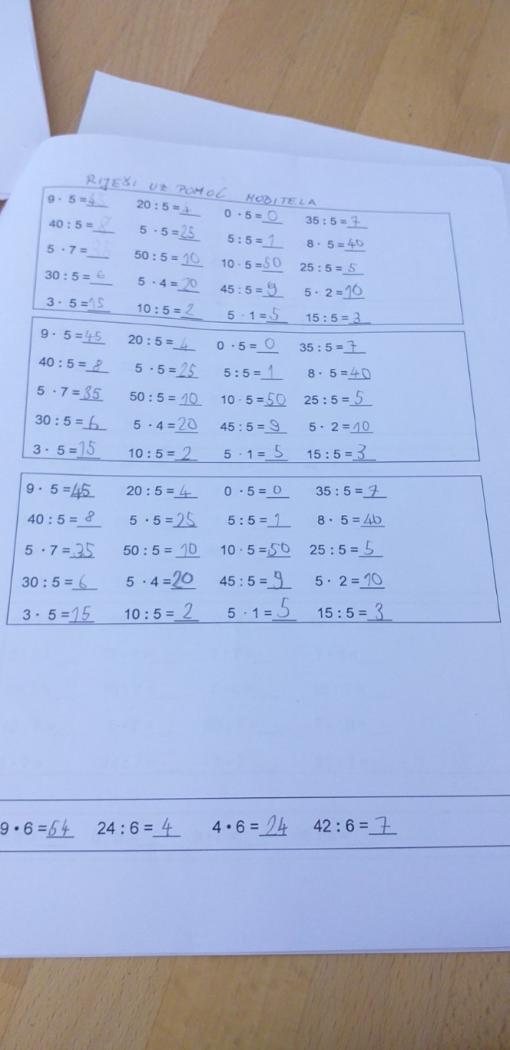 RIJEŠI UZ POMOĆ MOBITELA
9 · 5 = 45 20 : 5 = 4 0 · 5 = 0 35 : 5 = 7
40 : 5 = 8 5 · 5 = 25 5 : 5 = 1 8 · 5 = 40
5 · 7 = 35 50 : 5 = 10 10 · 5 = 50 25 : 5 = 5
30 : 5 = 6 5 · 4 = 20 45 : 5 = 9 5 · 2 = 10
3 · 5 = 15 10 : 5 = 2 5 · 1 = 5 15 : 5 = 3
9 · 5 = 45 20 : 5 = 4 0 · 5 = 0 35 : 5 = 7
40 : 5 = 8 5 · 5 = 25 5 : 5 = 1 8 · 5 = 40
5 · 7 = 35 50 : 5 = 10 10 · 5 = 50 25 : 5 = 5
30 : 5 = 6 5 · 4 = 20 45 : 5 = 9 5 · 2 = 10
3 · 5 = 15 10 : 5 = 2 5 · 1 = 5 15 : 5 = 3
9 · 5 = 45 20 : 5 = 4 0 · 5 = 0 35 : 5 = 7
40 : 5 = 8 5 · 5 = 25 5 : 5 = 1 8 · 5 = 40
5 · 7 = 35 50 : 5 = 10 10 · 5 = 50 25 : 5 = 5
30 : 5 = 6 5 · 4 = 20 45 : 5 = 9 5 · 2 = 10
3 · 5 = 15 10 : 5 = 2 5 · 1 = 5 15 : 5 = 3
9 • 6 = 54 24 : 6 = 4 4 • 6 = 24 42 : 6 = 7